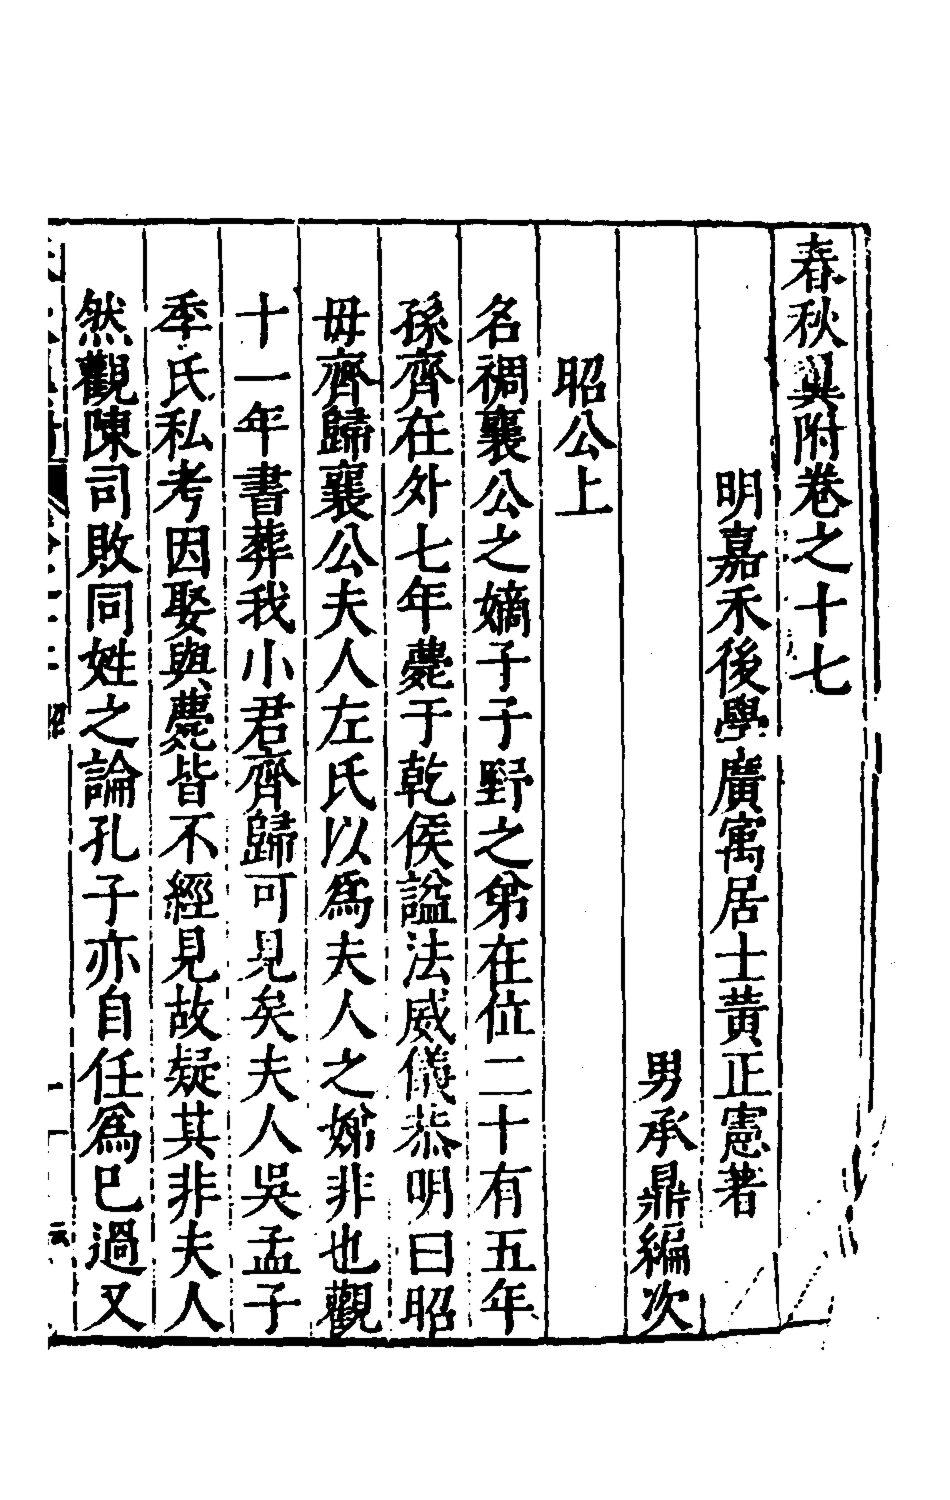 春秋翼附卷之十七
明嘉禾後學廣寓居士黃正憲著
男承鼎編次
昭公上
名裯襄公之嫡子子野之弟在位二十有五年
孫齊在外七年薨于乾侯諡法威儀恭明曰昭
毋齊歸襄公夫人左氏以爲夫人之娣非也觀
十一年書葬我小君齊歸可見矣夫人吳孟子
季氏私考因娶與薨皆不經見故疑其非夫人
然觀陳司敗同姓之論孔子亦自任爲已過又